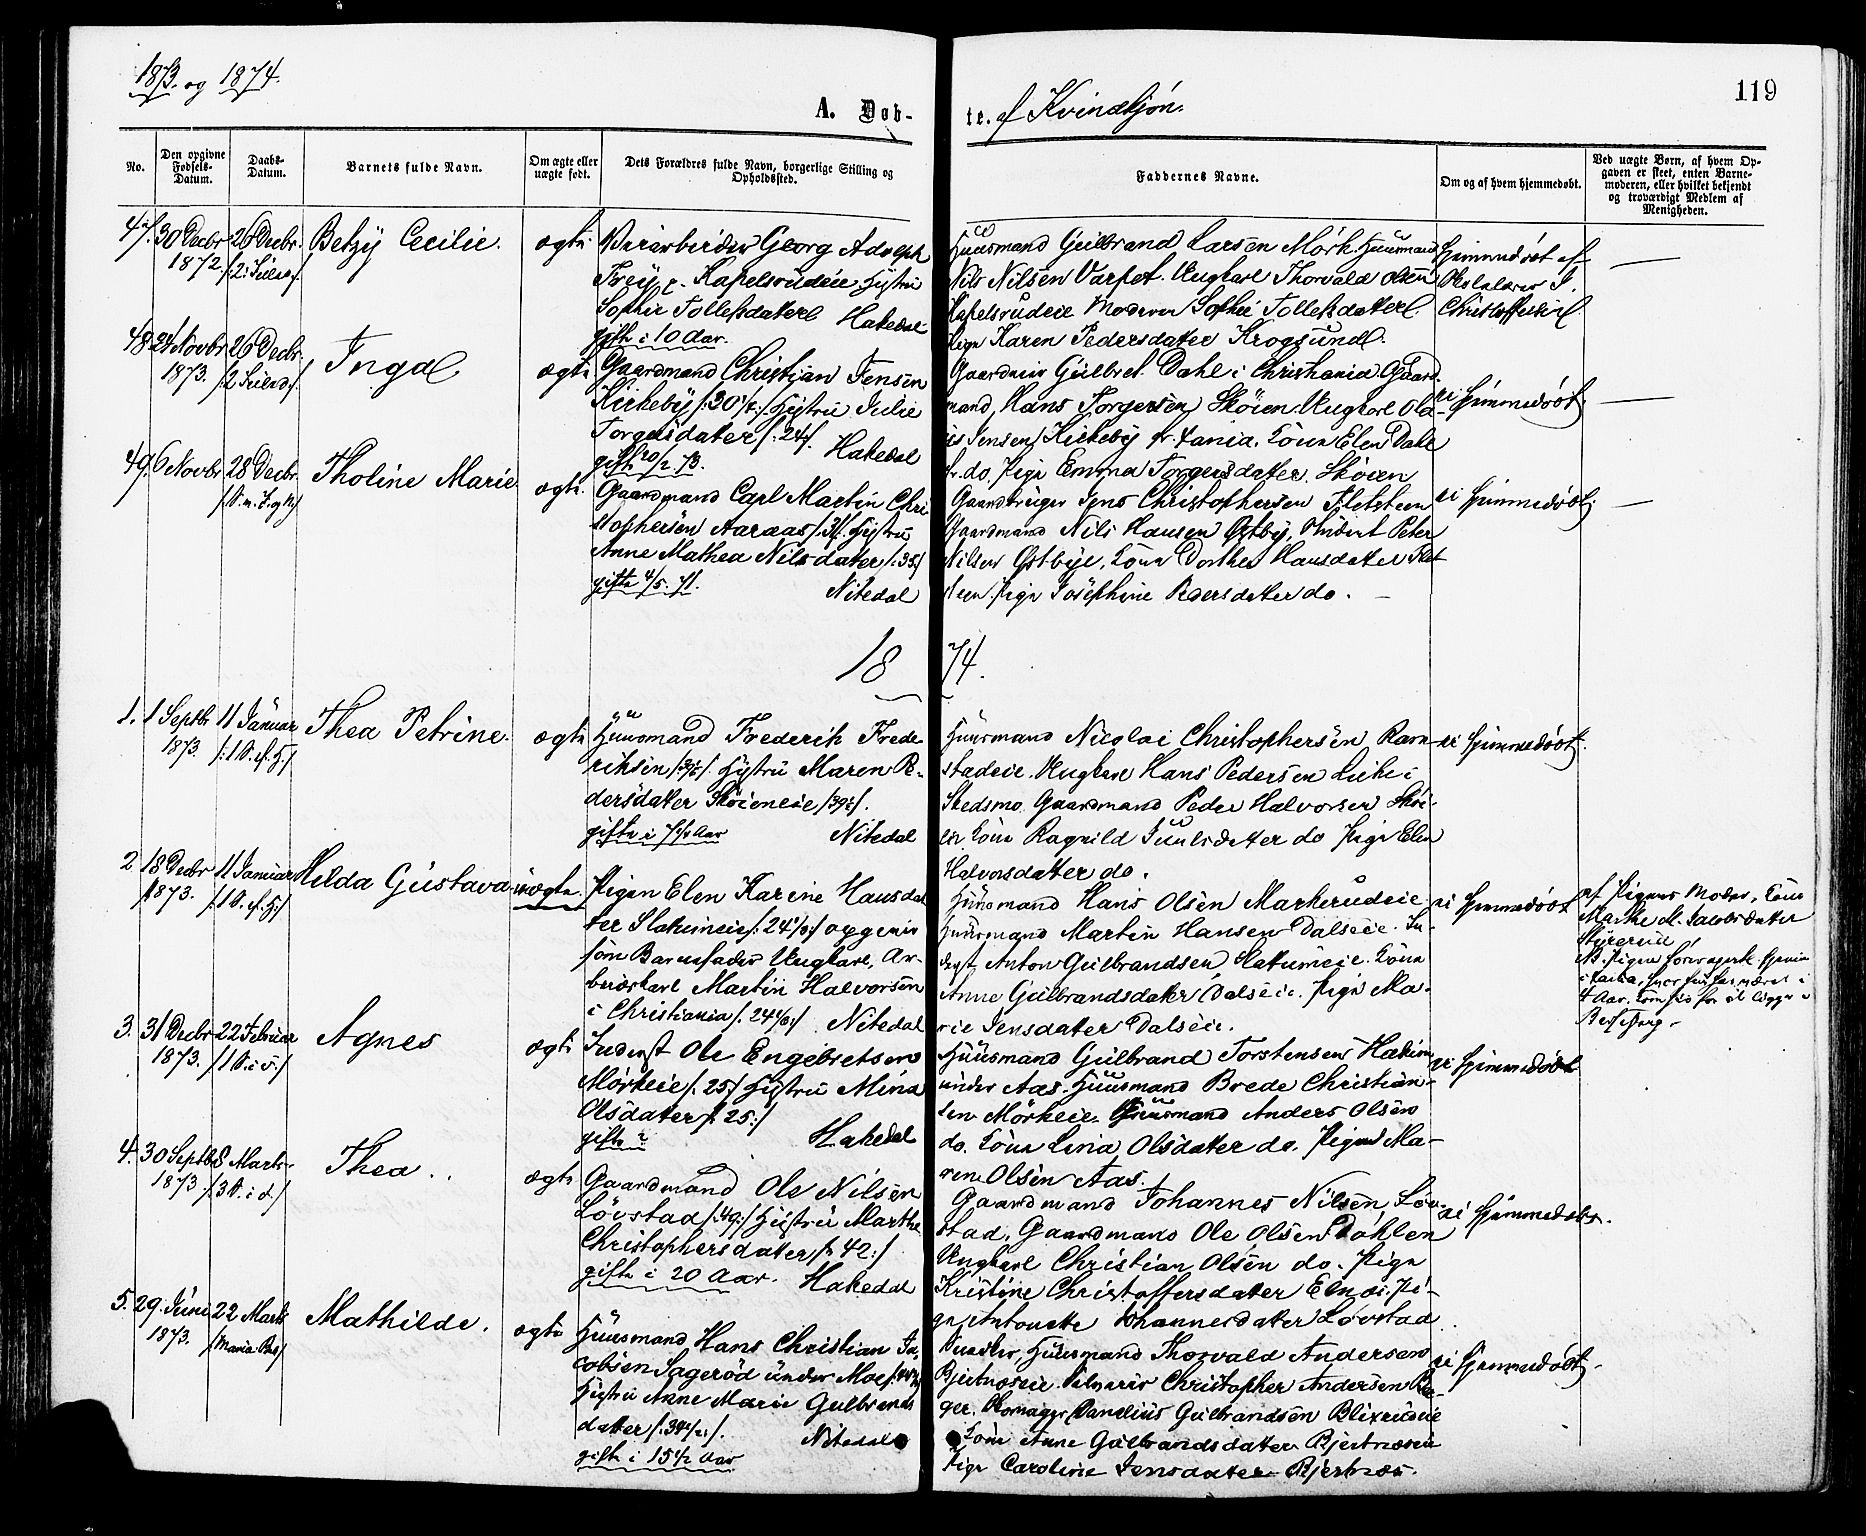 1873. og 1874.
119
A. Døb-
te. af Kvindkjøn.
No.
Den opgivne Fødsels-Datum.
Daabs-Datum.
Barnets fulde Navn.
Om ægte eller uægte født.
Dets Forældres fulde Navn, borgerlige Stilling og Opholdssted.
Faddernes Navne.
Om og af hvem hjemmedøbt.
Ved uægte Børn, af hvem Opgaven er skeet, enten Barnemoderen, eller hvilket bekjendt og troværdigt Medlem af Menigheden.
47. 30 Decbr 1872.
26 Decbr. /2. Juledag/
Betzy Cecilie.
ægte
Georg Adolph
Frey Kapelsrudeie Hustru
Sophie Tollefsdatter Hakedal
gifte i 10 Aar.
Huusmand Gulbrand Larsen Mørk. Huusmand
Nils Nilsen Varpet. Ungkarl Thorvald Olsen
Kapelsrudeie Moderen Sophie Tollefsdatter
Pige Karen Pedersdatter Krogsund.
Hjemmedøbt af
Skolelærer
48. 24 Novbr 1873.
26 Decbr. /2 Juled/
Inga
ægte
Gaardmand Christian Jensen
Kirkeby /:30 1/2:/ Hustru Julie
Torgersdater /:24/. Hakedal
gifte 20/2 73.
Gulbr. Dahl i Christiania Gaard-
mand Hans Torgersen Skøien. Ungkarl Ole
Jensen Kirkeby fr. Kona Elen Dahl
fr. do. Pige Emma Torgersdatter Skøien
ei hjemmedøbt
49. 6 Novbr
28 Decbr.
Tholine Marie
ægte.
Gaardmand Carl Martin Chri
stophersen Aaraas Hustru
Anne Mathea Nilsdater /:35/
gifte 4/5. 71. Nitedal
Gaardbruger Jens Christophersen Fletsteen
Gaardmand Nils Hansen Østby, Student Peter
Nilsen Østbye, Kona Dorthea Hansdatter Flet
steen. Pige Josephine Peersdater do.
ei hjemmedøbt
18 74.
1. 1 Septbr 1873
11 Januar /:1 S. ef. H:/
Thea Petrine.
ægte
Huusmand Frederik Frede-
riksen Hustru Maren Pe-
dersdater Skøieneie
gifte i Aar Nitedal
Huusmand Nicolai Christophersen Ram-
stadeie. Ungkarl Hans Pedersen Lieke i
Skedsmo Gaardmand Peder Halvorsen Skøi-
en Kona Ragnild Juulsdatter do Pige Elen
Halvorsdatter do.
ei hjemmedøbt.
2 18 Decbr 1873.
11 Januar /:1 S. ef. H:/
Hilda Gustava
uægte.
Pigen Elen Karine Hansdat
ter /:24 opgiven
som Barnefader Ungkarl, Ar-
beidskarl Martin Halvorsen
i Christiania Nitedal
Huusmand Hans Olsen Markerudeie
Huusmand Martin Hansen Dalseie. In-
derst Anton Gulbrandsen Kona
Anne Gulbrandsdatter Dalseie. Pige Ma-
rie Jensdatter Dalseie.
ei hjemmedøbt
af Pigens Moder, Kone
Marthe M. Jacobsdatter
4 Aar.
3. 31 Decbr 1873.
22 Februar /1 S. i
Agnes
ægte
Inderst Ole Engebretsen
Mørkeie /:25/ Hustru Mina
Olsdater /:25:/
gifte ? Hakedal
Huusmand Gulbrand Torstensen
under Aas. Huusmand Brede Christian-
sen Mørkeie Huusmand Anders Olsen
do. Kona Lina Olsdater do. Pigen Ma-
ren Olsen Aas.
ei hjemmedøbt
4. 30 Septbr 1873
8 Marts /3 S. i
Thea.
ægte
Gaardmand Ole Nilsen
Løvstad /:49:/ Hustru Marthe
Christophersdater /: 42:/
gifte i 20 Aar. Hakedal
Gaardmand Johannes Nilsen Løv-
stad, Gaardmand Ole Olsen Døhlen
Ungkarl Christian Olsen do. Pige
Kristine Christoffersdater Elnæs. Pi-
ge Antonette Johannesdater Løvstad
ei hjemmedøbt.
5. 29. Juni 1873.
22 Marts /Maria Bes/
Mathilde.
ægte
Huusmand Hans Christian Ja-
cobsen Sagerød under Moe
Hustru Anne Marie Gulbrands
datter
gifte i 15 1/2 Aar Nitedal
Huusmand Thorvald Andersen
Bjertnæseie. Christopher Andersen
Danelius Gulbrandsen Blixrudeie
Kone Anne Gulbrandsdatter Bjertnæseie
Pige Caroline Jensdatter Bjertnæs.
ei hjemmedøbt